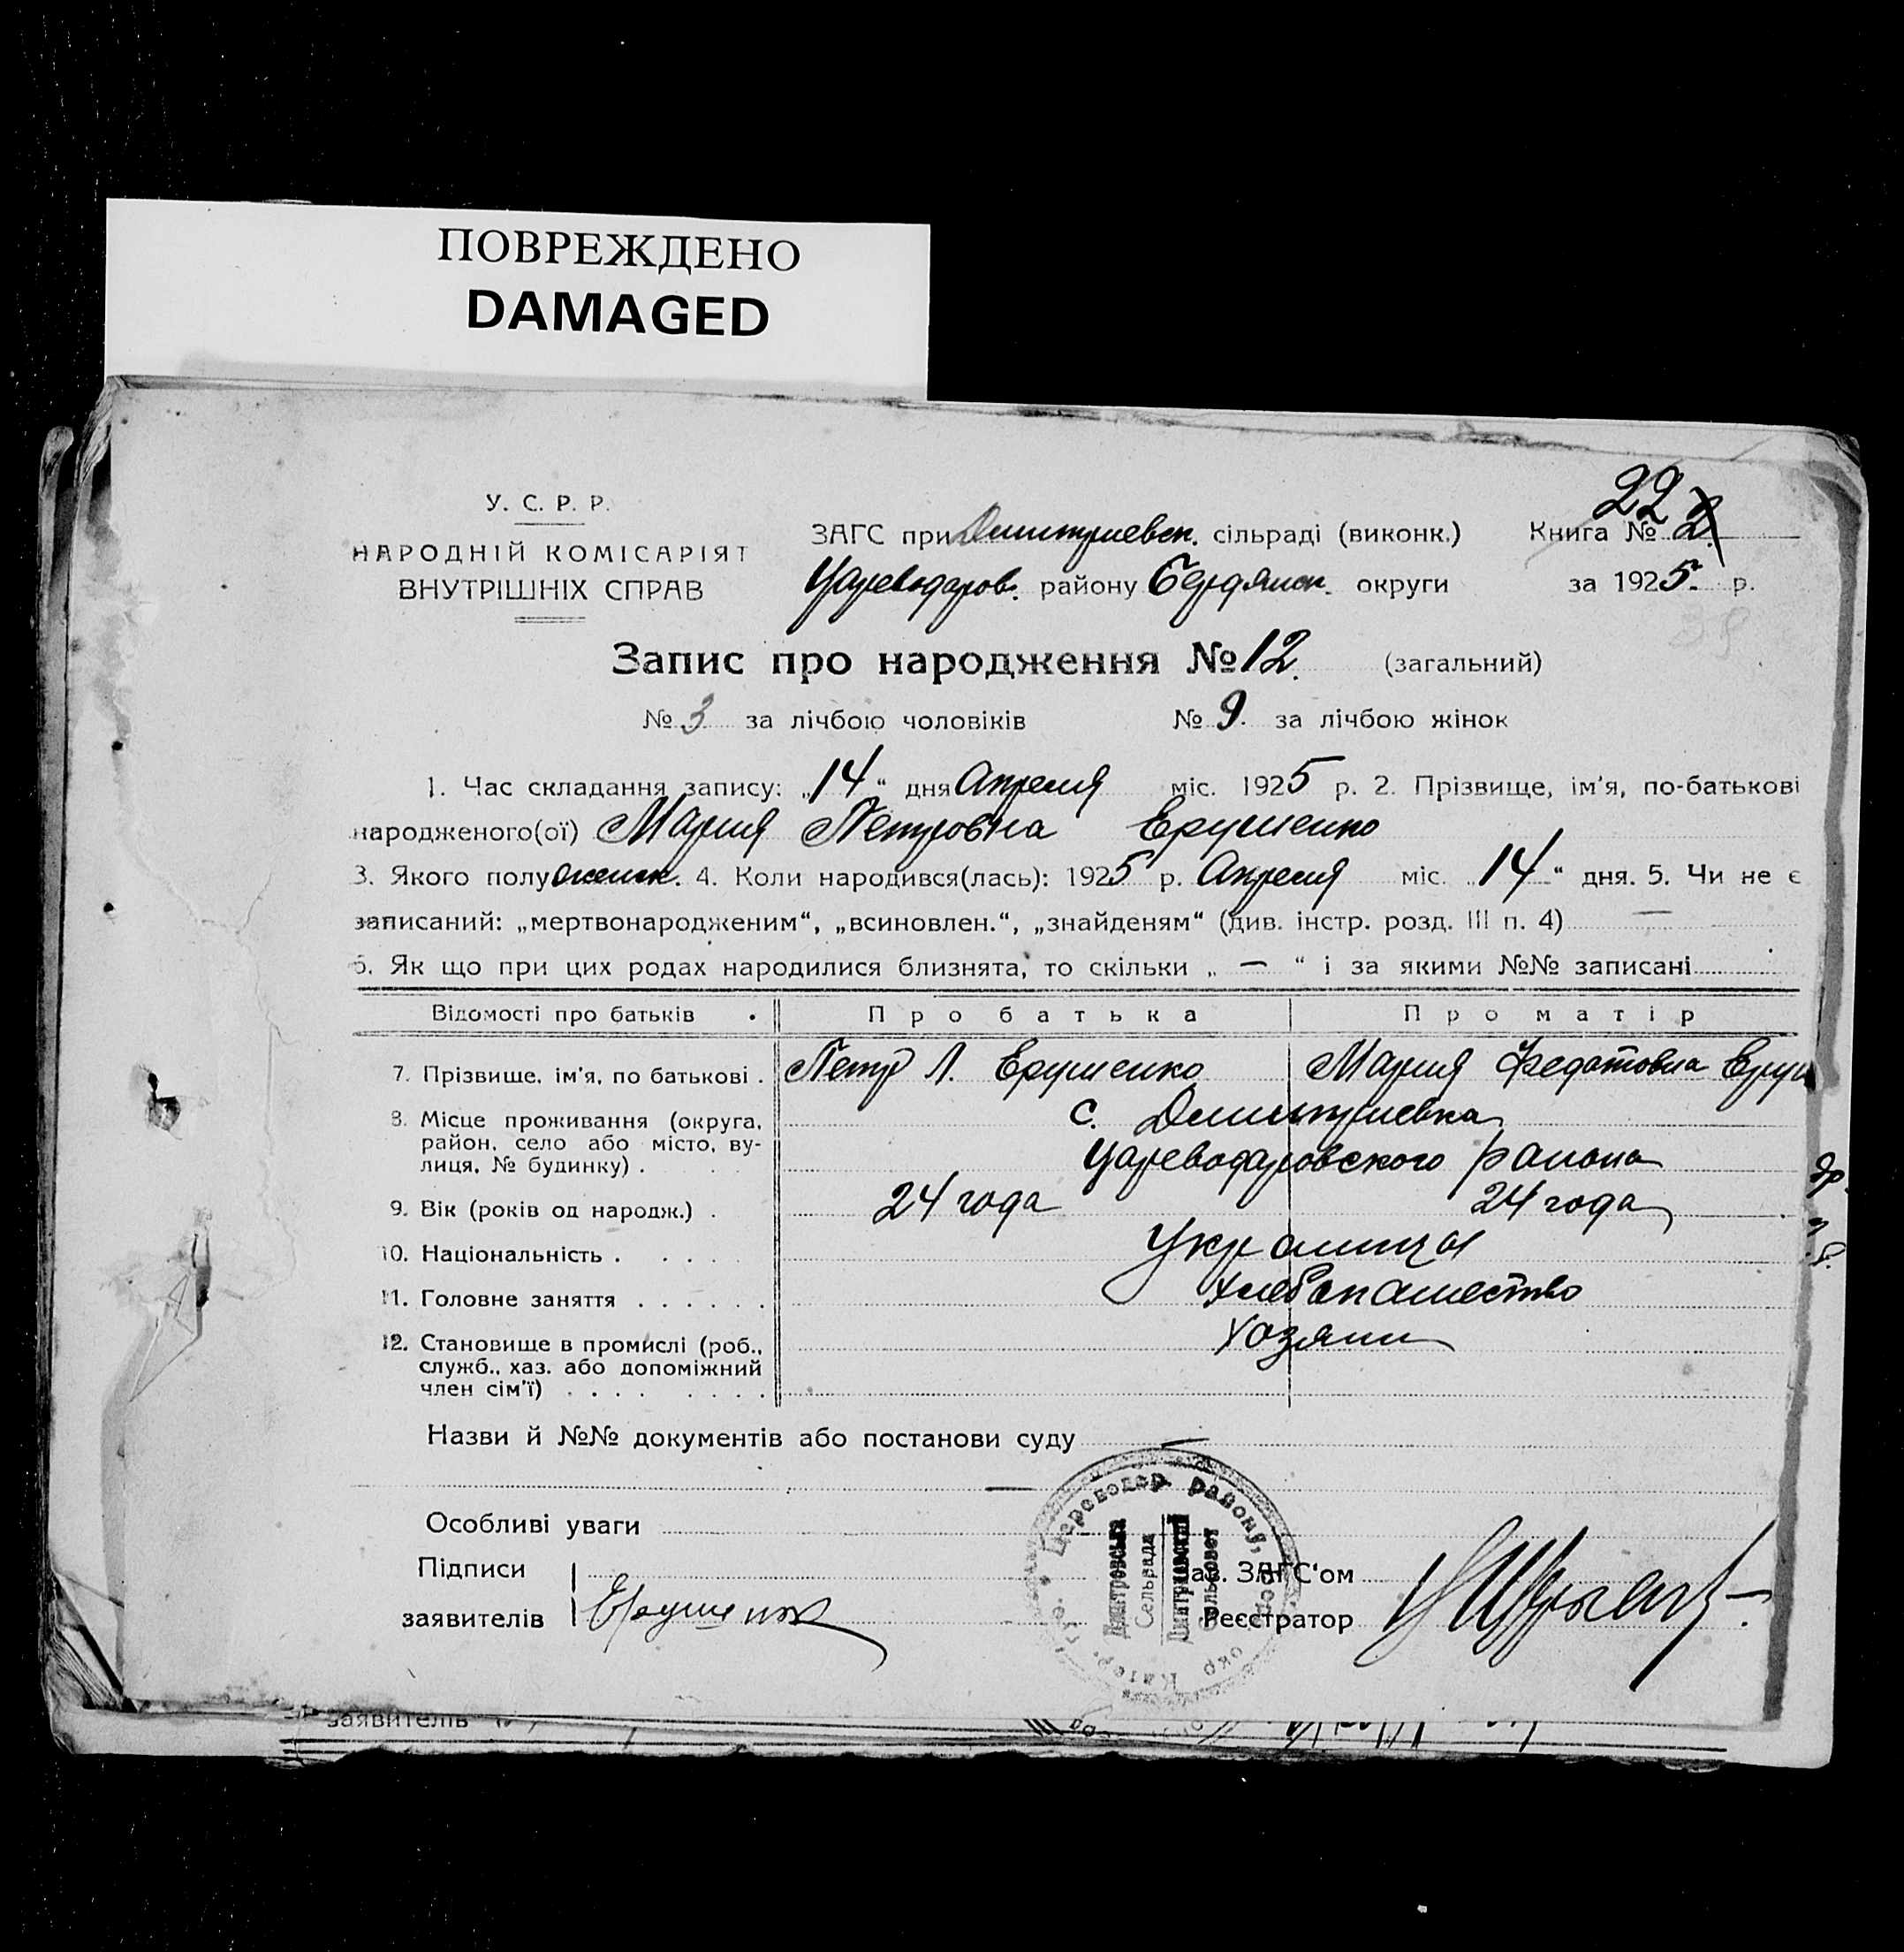 ПОВРЕЖДЕНО
DAMAGED
22
У. С. Р. Р.
НАРОДНІЙ КОМІСАРІЯТ
ВНУТРІШНІХ СПРАВ
ЗАГС при Дмитриевск. сільраді (виконк.) Книга № 2
Цареводаров. району Бердянск. округи за 1925. р.
Запис про народження № 12. (загальний)
№ 3 за лічбою чоловіків № 9. за лічбою жінок
1. Час складання запису: „14“ дня Апреля міс. 1925 р. 2. Прізвище, ім'я, по-батькові
народженого(ої) Мария Петровна Ерушенко
3. Якого полу женск. 4. Коли народився(лась): 1925 р. Апреля міс. „14“ дня. 5. Чи не є
записаний: „мертвонародженим“, „всиновлен.“, „знайденям“ (див. інстр. розд. III п. 4) —
6. Як що при цих родах народилися близнята, то скільки „ — “ і за якими №№ записані
Відомості про батьків Про батька Про матір
7. Прізвище, ім'я, по батькові . Петр Л. Ерушенко Мария Федотовна Еруш
8. Місце проживання (округа, район, село або місто, ву-лиця, № будинку) . с. Дмитриевка
Цареводаровского района
9. Вік (років од народж.) . 24 года 24 года
10. Національність . Украинцы
11. Головне заняття . . . . . . Хлебопашество
12. Становище в промислі (роб., служб., хаз. або допоміжний член сім'ї) Хозяин
Назви й №№ документів або постанови суду —
—
Особливі уваги
Підписи Зав. ЗАГС'ом
заявителів Ерушенко Реєстратор
Цареводар. району,
Дмитровська
Сельрада
Дмитриевский
Сельсовет
заявителів